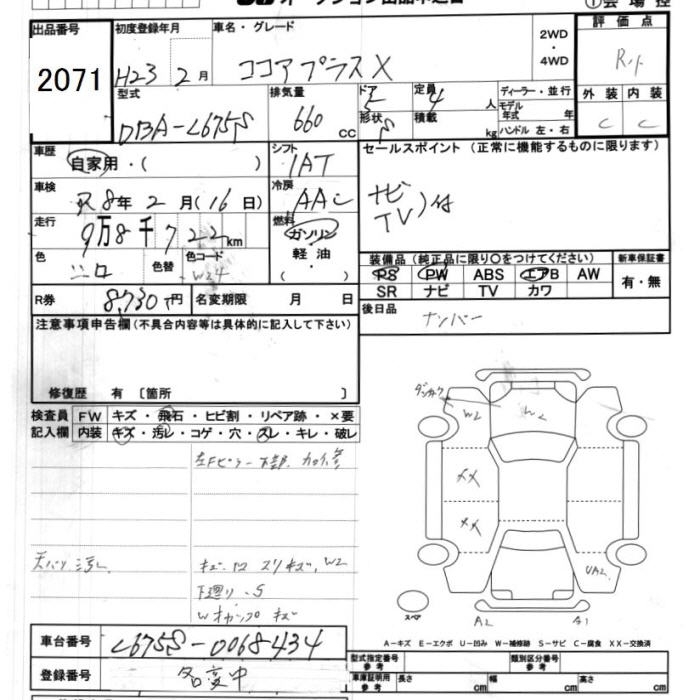 オークション出品申込書
出品番号 2071
初度登録年月 H23 2月
車名・グレード ココアプラスX
2WD・4WD
評価点
外装 内装
C C
型式 DBA-L675S
排気量 660 cc
ドア 5
形状 S
定員 4 人
積載 kg
ディーラー・並行
モデル年式 年
ハンドル 左・右
車歴 自家用・( )
シフト IAT
セールスポイント(正常に機能するものに限ります)
車検 R8年2月(16日)
冷房 AAC
ナビ
TV )付
走行 9万8千722km
燃料 ガソリン 軽油・( )
色
色替
色コード W24
装備品(純正品に限り〇をつけてください)
PS PW ABS エアB AW
SR ナビ TV カワ
新車保証書
有・無
R券 8,730円
名変期限 月 日
後日品 ナンバー
注意事項申告欄(不具合内容等は具体的に記入して下さい)
修復歴 有 〔箇所 〕
検査員記入欄
FW キズ・飛石・ヒビ割・リペア跡・×要
内装 キズ・汚レ・コゲ・穴・スレ・キレ・破レ
左Fピラー下部
天バリ 汚レ
W2
下廻り・S
キズ
W2
W2
XX
XX
UA2
A2
A1
スペア
A-キズ E-エクボ U-凹み W-補修跡 S-サビ C-腐食 XX-交換済
車台番号 L675S-0068434
登録番号 名変中
型式指定番号 参考
類別区分番号 参考
車庫証明用 参考
長さ cm
幅 cm
高さ cm